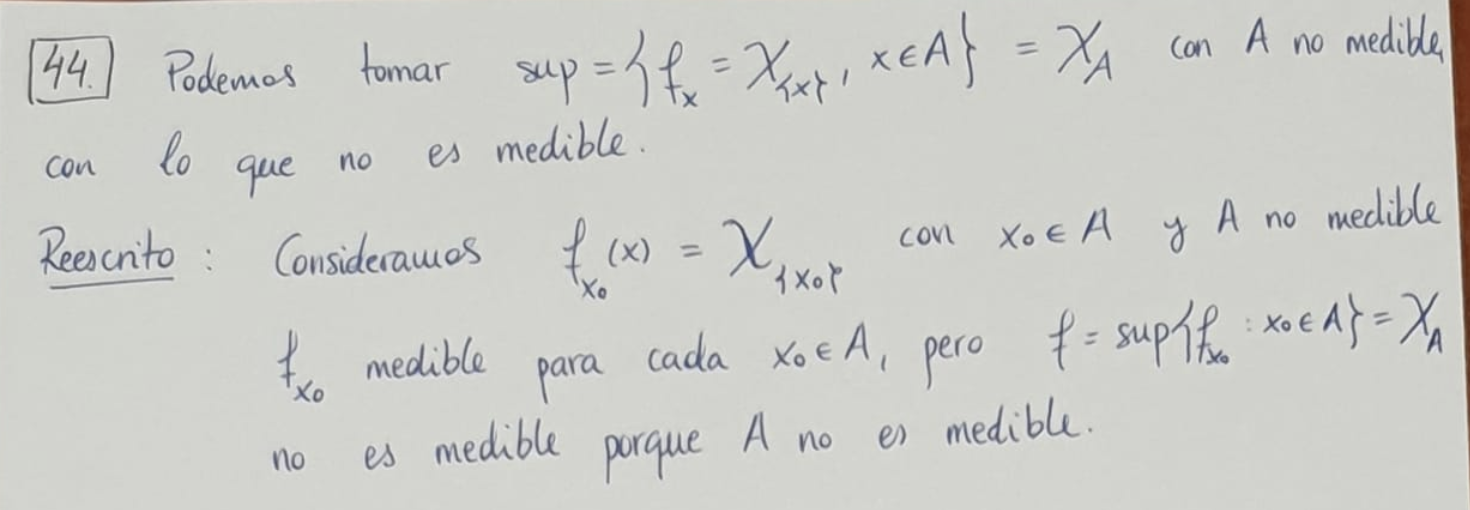 44. Podemos tomar sup = {f_x = χ_{x}, x ∈ A} = χ_A con A no medible,
con lo que no es medible.
Reescrito : Consideramos f_{x₀}(x) = χ_{x₀} con x₀ ∈ A y A no medible
f_{x₀} medible para cada x₀ ∈ A, pero f = sup{f_{x₀} : x₀ ∈ A} = χ_A
no es medible porque A no es medible.